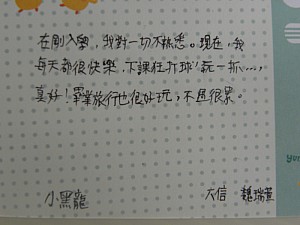 在剛入學,我對一切不熟悉。現在,我
每天都很快樂,下課任打球、玩一抓…,
真好!畢業旅行也很好玩,不過很累。
小黑龍 大信 魏瑞萱
you